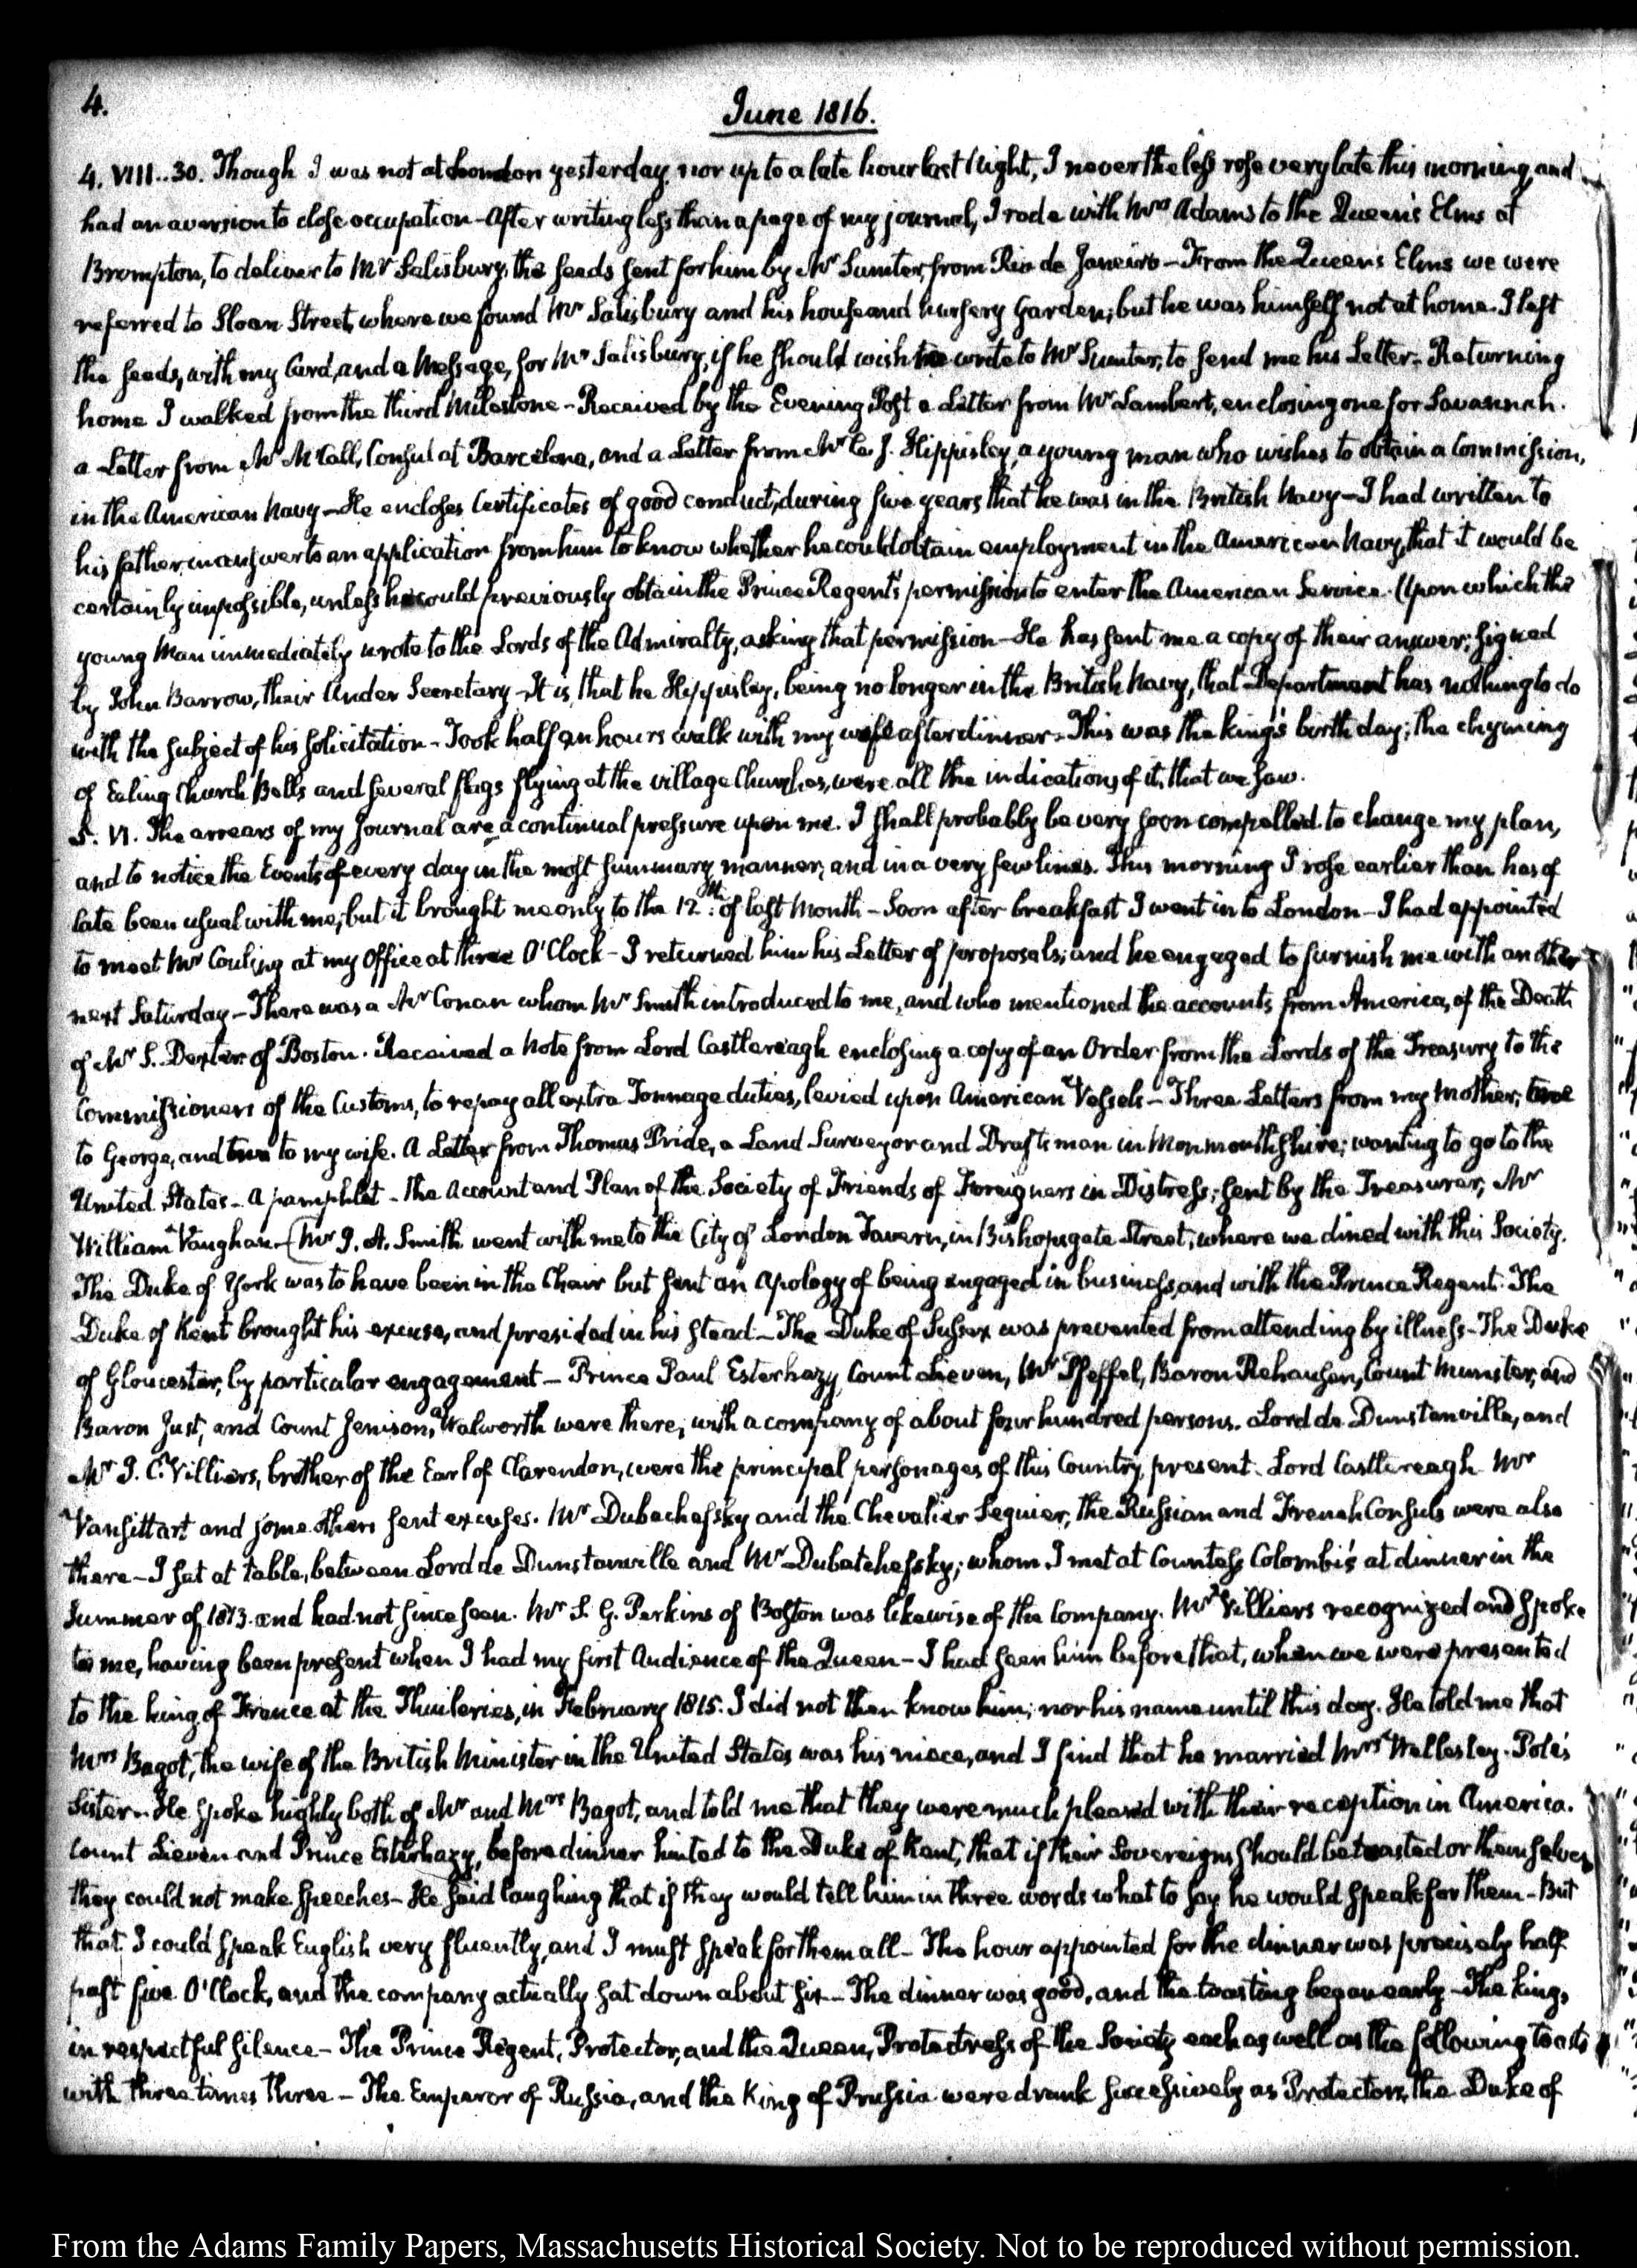 4.
June 1816.
4. VIII..30. Though I was not at London yesterday, nor up to a late hour last Night, I nevertheless rose very late this morning, and
had an aversion to close occupation - After writing less than a page of my journal, I rode with Mrs Adams to the Queen's Elms at
Brompton, to deliver to Mr Salisbury, the seeds sent for him by Mr Sumter, from Rio de Janeiro - From the Queen's Elms we were
referred to Sloan Street, where we found Mr Salisbury and his house and nursery Garden; but he was himself not at home. I left
the seeds, with my Card, and a Message, for Mr Salisbury, if he should wish to write to Mr Sumter, to send me his Letter. Returning
home I walked from the third Milestone - Received by the Evening Post a Letter from Mr Lambert, enclosing one for Savannah.
a Letter from Mr McCall, Consul at Barcelona, and a Letter from Mr C. J. Hippisley, a young man who wishes to obtain a Commission,
in the American Navy - He encloses Certificates of good conduct, during five years that he was in the British Navy - I had written to
his father, in answer to an application from him to know whether he could obtain employment in the American Navy, that it would be
certainly impossible, unless he could previously obtain the Prince Regent's permission to enter the American Service. Upon which the
young Man immediately wrote to the Lords of the Admiralty, asking that permission - He has sent me a copy of their answer; signed
by John Barrow, their Under Secretary - It is, that he Hippisley, being no longer in the British Navy, that Department has nothing to do
with the subject of his solicitation - Took half an hours walk with my wife after dinner. This was the king's birth day; the chyming
of Ealing Church Bells and several flags flying at the village Churches, were all the indications of it, that we saw.
5. VI. The arrears of my Journal are a continual pressure upon me. I shall probably be very soon compelled to change my plan,
and to notice the Events of every day in the most summary manner; and in a very few lines. This morning I rose earlier than has of
late been usual with me; but it brought me only to the 12th: of last Month - Soon after breakfast I went in to London - I had appointed
to meet Mr Couling at my Office at three O'Clock - I returned him his Letter of proposals; and he engaged to furnish me with another
next Saturday - There was a Mr Conan whom Mr Smith introduced to me, and who mentioned the accounts from America, of the Death
of Mr S. Dexter of Boston. Received a Note from Lord Castlereagh enclosing a copy of an Order from the Lords of the Treasury to the
Commissioners of the Customs, to repay all extra Tonnage duties, levied upon American Vessels - Three Letters from my Mother; one
to George, and two to my wife. A Letter from Thomas Pride, a Land Surveyor and Draftsman in Monmouthshire; wanting to go to the
United States - A pamphlet - the Account and Plan of the Society of Friends of Foreigners in Distress; sent by the Treasurer, Mr
William Vaughan - (Mr J. A. Smith went with me to the City of London Tavern, in Bishopsgate Street; where we dined with this Society.
The Duke of York was to have been in the Chair but sent an Apology of being engaged in business, and with the Prince Regent. The
Duke of Kent brought his excuse, and presided in his stead - The Duke of Sussex was prevented from attending by illness - The Duke
of Gloucester, by particular engagement - Prince Paul Esterhazy, Count Lieven, Mr Pfeffel, Baron Rehausen, Count Munster, and
Baron Just, and Count Jenison, Walworth were there, with a company of about four hundred persons. Lord de Dunstanville, and
Mr J. C. Villiers, brother of the Earl of Clarendon, were the principal personages of this Country, present. Lord Castlereagh Mr
Vansittart and some others sent excuses. Mr Dubachefsky and the Chevalier Seguier, the Russian and French Consuls were also
there - I sat at table, between Lord de Dunstanville and Mr Dubatchefsky; whom I met at Countess Colombi's at dinner in the
Summer of 1813. and had not since seen. Mr S. G. Perkins of Boston was likewise of the Company. Mr Villiers recognized and spoke
to me, having been present when I had my first Audience of the Queen - I had seen him before that, when we were presented
to the king of France at the Thuileries, in February 1815. I did not then know him; nor his name until this day. He told me that
Mrs Bagot, the wife of the British Minister in the United States was his niece, and I find that he married Mrs Wellesley-Pole's
Sister - He spoke highly both of Mr and Mrs Bagot, and told me that they were much pleased with their reception in America.
Count Lieven and Prince Esterhazy, before dinner hinted to the Duke of Kent, that if their Sovereigns should be toasted or themselves
they could not make Speeches - He said laughing that if they would tell him in three words what to say he would speak for them - But
that I could speak English very fluently, and I must speak for them all - The hour appointed for the dinner was precisely half
past five O'Clock, and the company actually sat down about six - The dinner was good, and the toasting began early - The king,
in respectful silence - The Prince Regent, Protector, and the Queen, Protectress of the Society each as well as the following toasts
with three times three - The Emperor of Russia, and the King of Prussia were drank successively as Protectors, the Duke of
From the Adams Family Papers, Massachusetts Historical Society. Not to be reproduced without permission.